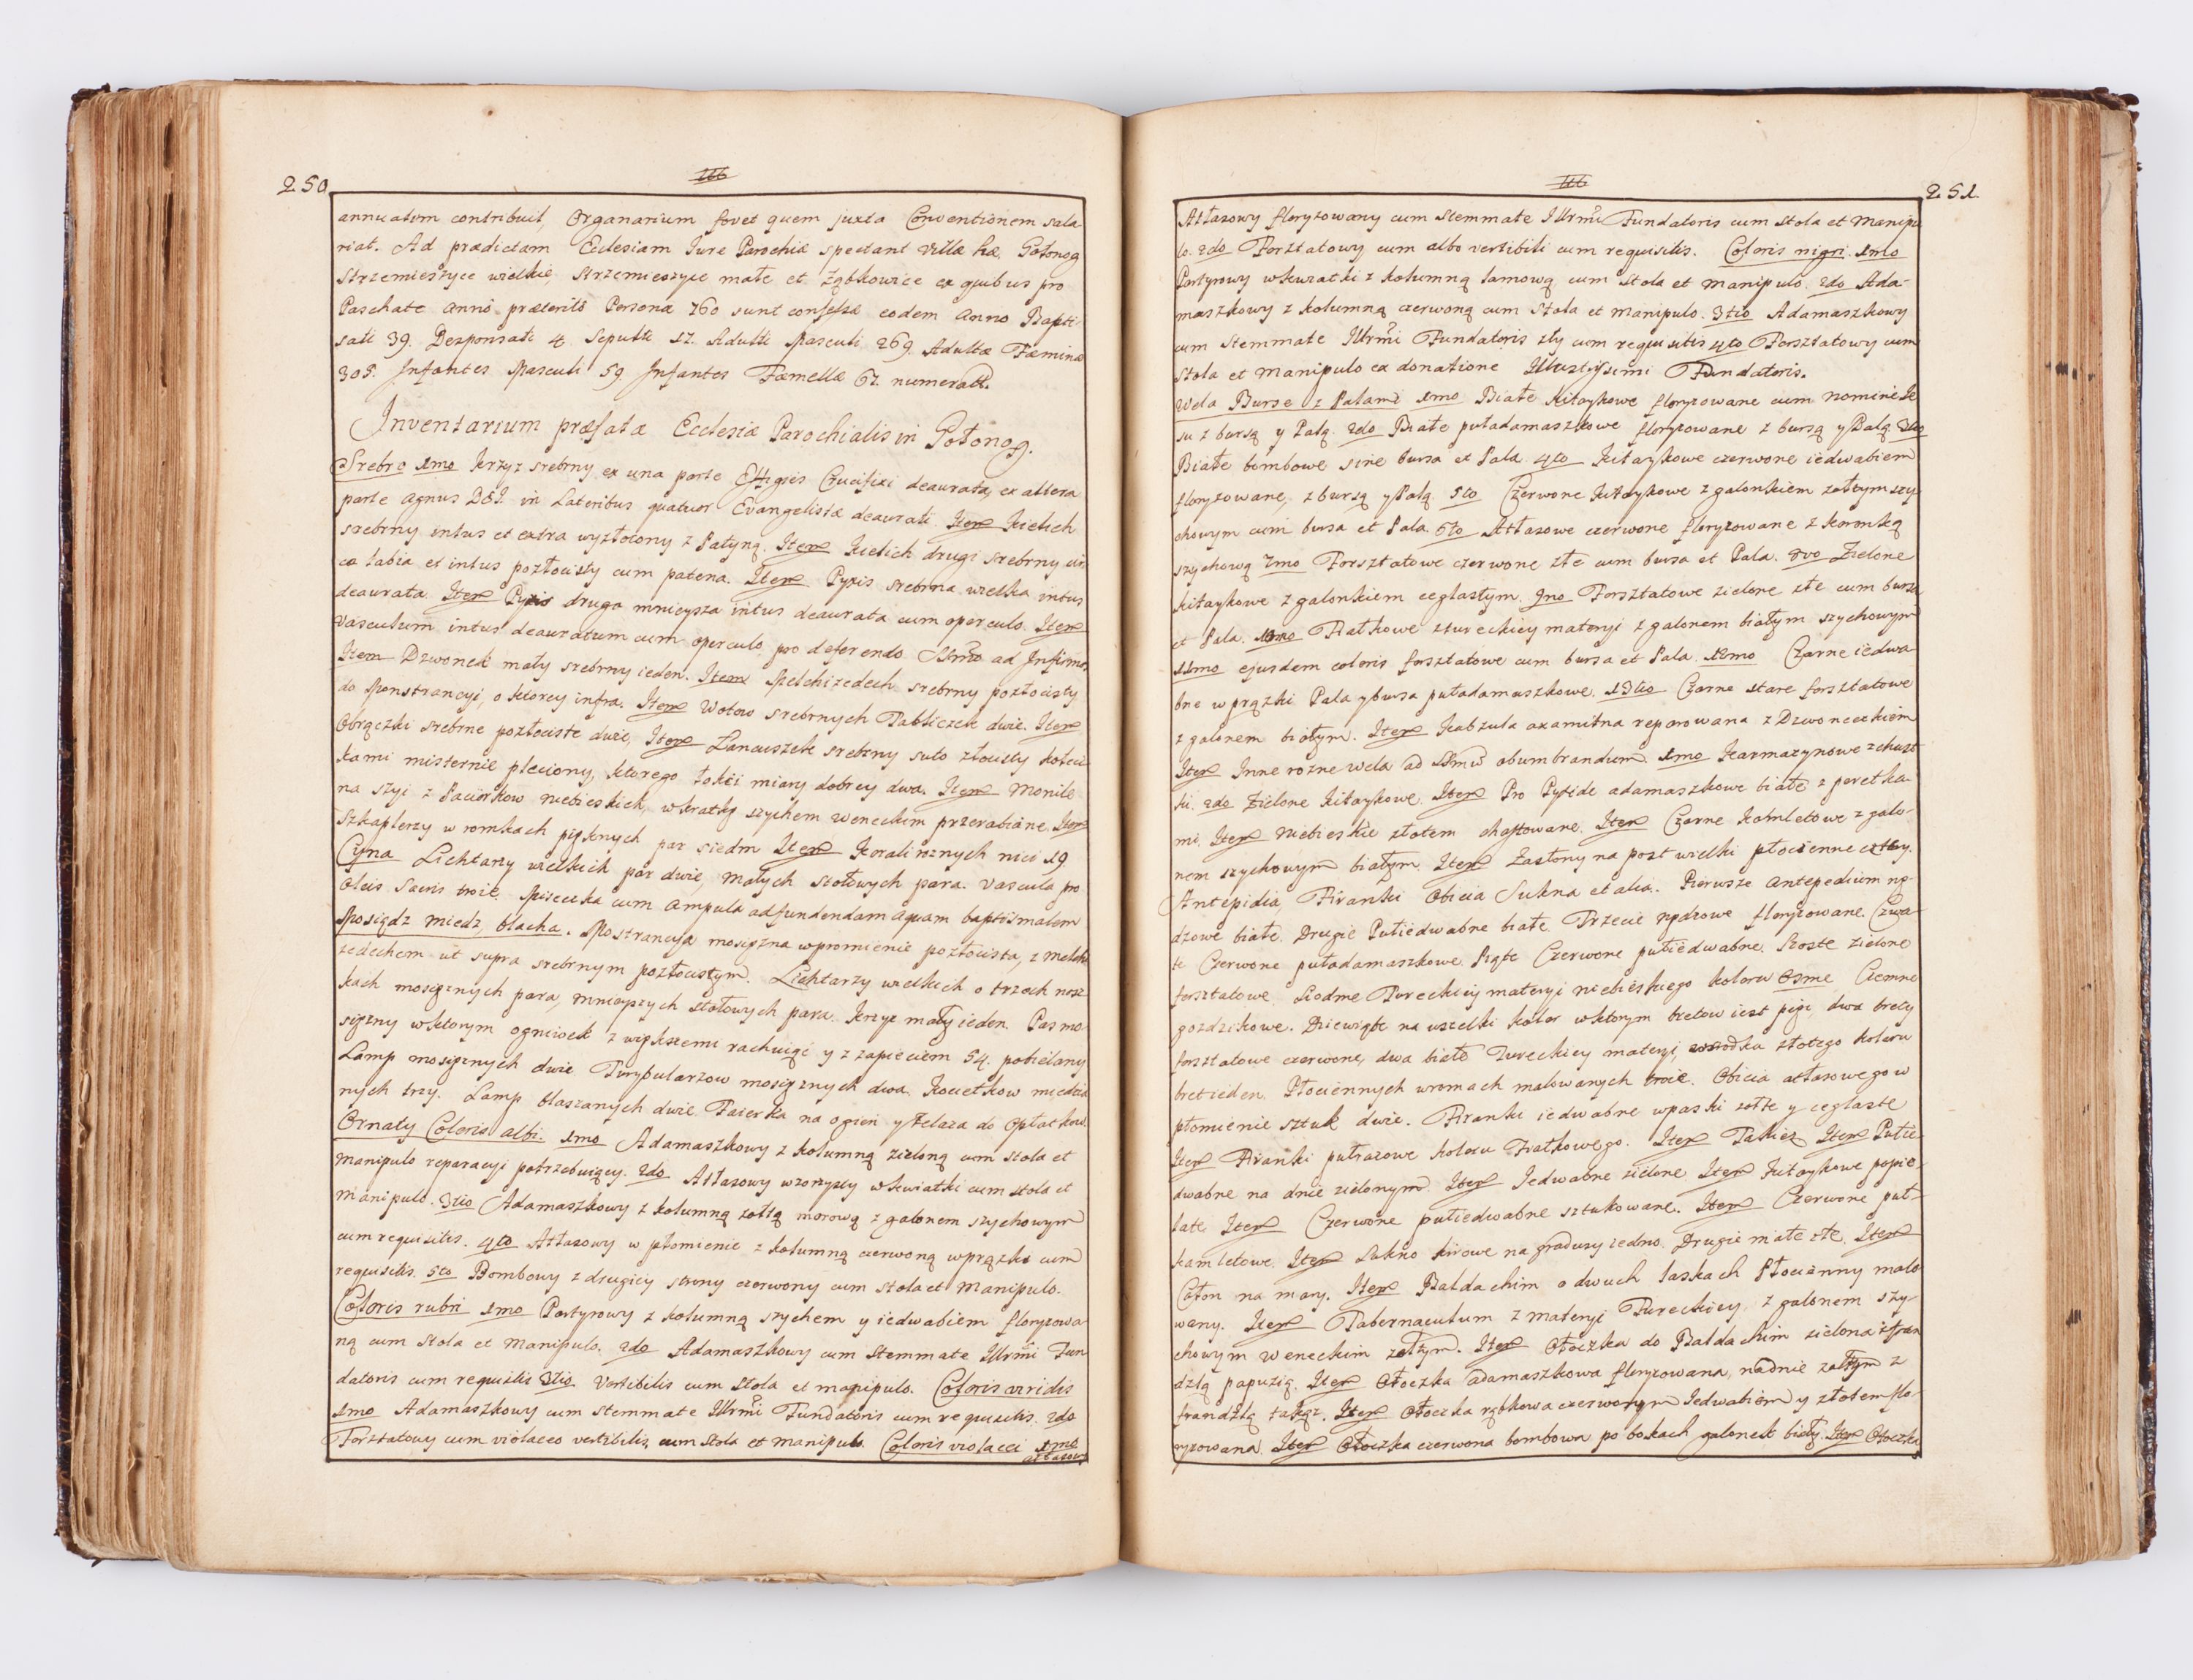 250
annuatim contribuit, Organarium fovet quem juxta Conventionem sala-
riat. Ad prædictam Ecclesiam Iure Parochiæ spectant Villæ hæ, Gołonog
Strzemieszyce wielkie, Strzemieszyce małe et Ząbkowice ex quibus pro
Paschate Anno præterito Personæ 760 sunt confessæ eodem Anno Bapti-
sati 39. Desponsati 4. Sepulti 17. Adulti Masculi 269. Adultæ Fæminæ
308. Infantes Masculi 59. Infantes Fæmellæ 67. numerati.
Inventarium præfatæ Ecclesiæ Parochialis in Gołonog.
Srebro 1mo Krzyz srebrny ex una parte Effigies Crucifixi deaurata, ex altera
parte Agnus DEI. in Lateribus quatuor Evangelistæ deaurati. Item Kielich
srebrny intus et extra wyzłocony z Patyną. Item Kielich drugi srebrny cir-
ca labia et intus pozłocisty cum patena. Item Pyxis srebrna wielka intus
deaurata Item Pyxis druga mnieysza intus deaurata cum operculo. Item
Vasculum intus deauratum cum operculo pro deferendo SSmo ad Infirmos
Item Dzwonek mały srebrny ieden. Item Melchizedech srebrny pozłocisty
do Monstrancyi, o ktorey infra. Item Wotow srebrnych Tabliczek dwie. Item
Obrączki srebrne pozłociste dwie, Item Lancuszek srebrny suto złocisty kołecz-
kami misternie pleciony, ktorego łokci miary dobrey dwa. Item Monile
na szyi z Paciorkow niebieskich, w kratkę szychem weneckim przerabiane. Item
Szkaplerzy w romkach pięknych par siedm Item Korali roznych nici 19
Cyna Lichtarzy wielkich par dwie, małych stołowych para. Vascula pro
Oleis Sacris troie. Miseczka cum Ampula ad fundendam aquam baptismalem
Mosiądz miedz, blacha. Mostrancya mosięzna w promienie pozłocista, z Melchi-
zedechem ut supra srebrnym pozłocistym. Lichtarzy wielkich o trzech nosz-
kach mosięznych para, mnieyszych stołowych para. Krzyz mały ieden. Pas mo-
sięzny w ktorym ogniwek z większemi rachuiąc y z zapięciem 54. pobielany
Lamp mosięznych dwie. Turybularzow mosięznych dwa. Kociełkow miedzia-
nych trzy. Lamp blaszanych dwie. Faierka na ogien y Zelaza do Opłatkow
Ornaty Coloris albi. 1mo Adamaszkowy z kolumną zieloną cum stola et
manipulo reparacyi potrzebuiący. 2do Atłasowy wzorzysty w kwiatki cum stola et
manipulo. 3tio Adamaszkowy z kolumną zołtą morową z galonem szychowym
cum requisitis. 4to Atłasowy w płomienie z kolumną czerwoną w prązki cum
requisitis. 5to Bombowy z drugiey strony czerwony cum stola et Manipulo.
Coloris rubri 1mo Partyrowy z kolumną szychem y iedwabiem floryzowa-
ną cum Stola et Manipulo. 2do Adamaszkowy cum Stemmate Illrmi Fun-
datoris cum requisitis 3tio Vertibilis cum Stola et manipulo. Coloris viridis
1mo Adamaszkowy cum Stemmate Illrmi Fundatoris cum requisitis. 2do
Forsztatowy cum violaceo vertibilis, cum Stola et Manipulo. Coloris violacei 1mo
Atłasowy
251
Atłasowy floryzowany cum Stemmate Illrmi Fundatoris cum Stola et Manipu-
lo. 2do Forsztatowy cum albo vertibili cum requisitis. Coloris nigri. 1mo
Partyrowy w kwiatki z kolumną lamową cum Stola et Manipulo. 2do Ada-
maszkowy z kolumną czerwoną cum Stola et Manipulo. 3tio Adamaszkowy
cum Stemmate Illrmi Fundatoris zły cum requisitis 4to Forsztatowy cum
Stola et Manipulo ex donatione Illustrissimi Fundatoris.
Wela Burse z Palami 1mo Białe Kitaykowe floryzowane cum Nomine Je-
su z bursą y Palą. 2do Białe puładamaszkowe floryzowane z bursą y Palą 3tio
Białe bombowe sine bursa et Pala. 4to Kitaykowe czerwone iedwabiem
floryzowane, z bursą y Palą. 5to Czerwone Kitaykowe z galonkiem zołtym szy-
chowym cum bursa et Pala. 6to Atłasowe czerwone floryzowane z koronką
szychową 7mo Forsztatowe czerwone złe cum bursa et Pala. 8vo Zielone
kitaykowe z galonkiem ceglastym. 9no Forsztatowe zielone złe cum bursa
et Pala. 10mo Fiałkowe z tureckiey materyi z galonem białym szychowym
11mo ejusdem coloris forsztatowe cum bursa et Pala. 12mo Czarne iedwa-
bne w prązki Pala y bursa puładamaszkowe. 13tio Czarne stare forsztatowe
z galonem białym. Item Kabzula axamitna reparowana z Dzwoneczkiem
Item Inne rozne Wela ad SSmum obumbrandum. 1mo Karmazynowe z chust-
ki. 2do Zielone Kitaykowe. Item Pro Pyxide adamaszkowe białe z perełka-
mi, Item niebieskie złotem chaftowane. Item Czarne Kamletowe z galo-
nem szychowym białym. Item Zasłony na post wielki płocienne
Antepidia, Firanki Obicia Sukna et alia. Pierwsze Antepedium rzą-
dzowe białe. Drugie Pułiedwabne białe Trzecie rządzowe floryzowane. Czwar-
te Czerwone puładamaszkowe. Piąte Czerwone pułiedwabne. Szoste zielone
forsztatowe. Siodme Tureckiey materyi niebieskiego koloru Osme Ciemno
gozdzikowe. Dziewiąte na wszelki kolor w ktorym bretow iest pięć, dwa brety
forsztatowe czerwone, dwa białe Tureckiey materyi, złotego koloru
bret ieden. Płociennych w romach malowanych troie. Obicia atłasowego w
płomienie sztuk dwie. Firanki iedwabne w paski zołte y ceglaste
Item Firanki pułrasowe koloru Fiałkowego. Item Takiez Item Pułie-
dwabne na dnie zielonym. Item Jedwabne zielone. Item Kitaykowe popie-
late Item Czerwone pułiedwabne sztukowane. Item Czerwone puł-
kamletowe. Item Sukno kirowe na gradusy iedno. Drugie małe złe. Item
Całon na mary. Item Baldachim o dwuch laskach Płocienny malo-
wany. Item Tabernaculum z materyi Tureckiey, z galonem szy-
chowym weneckim zołtym. Item Otoczka do Baldachim zielona z fran-
dzlą papuzią, Item Otoczka adamaszkowa floryzowana, na dnie zołtym z
frandzlą takąz. Item Otoczka rąbkowa czerwonym Jedwabiem y złotem flo-
ryzowana. Item Otoczka czerwona bombowa po bokach galonek biały. Item Otoczka